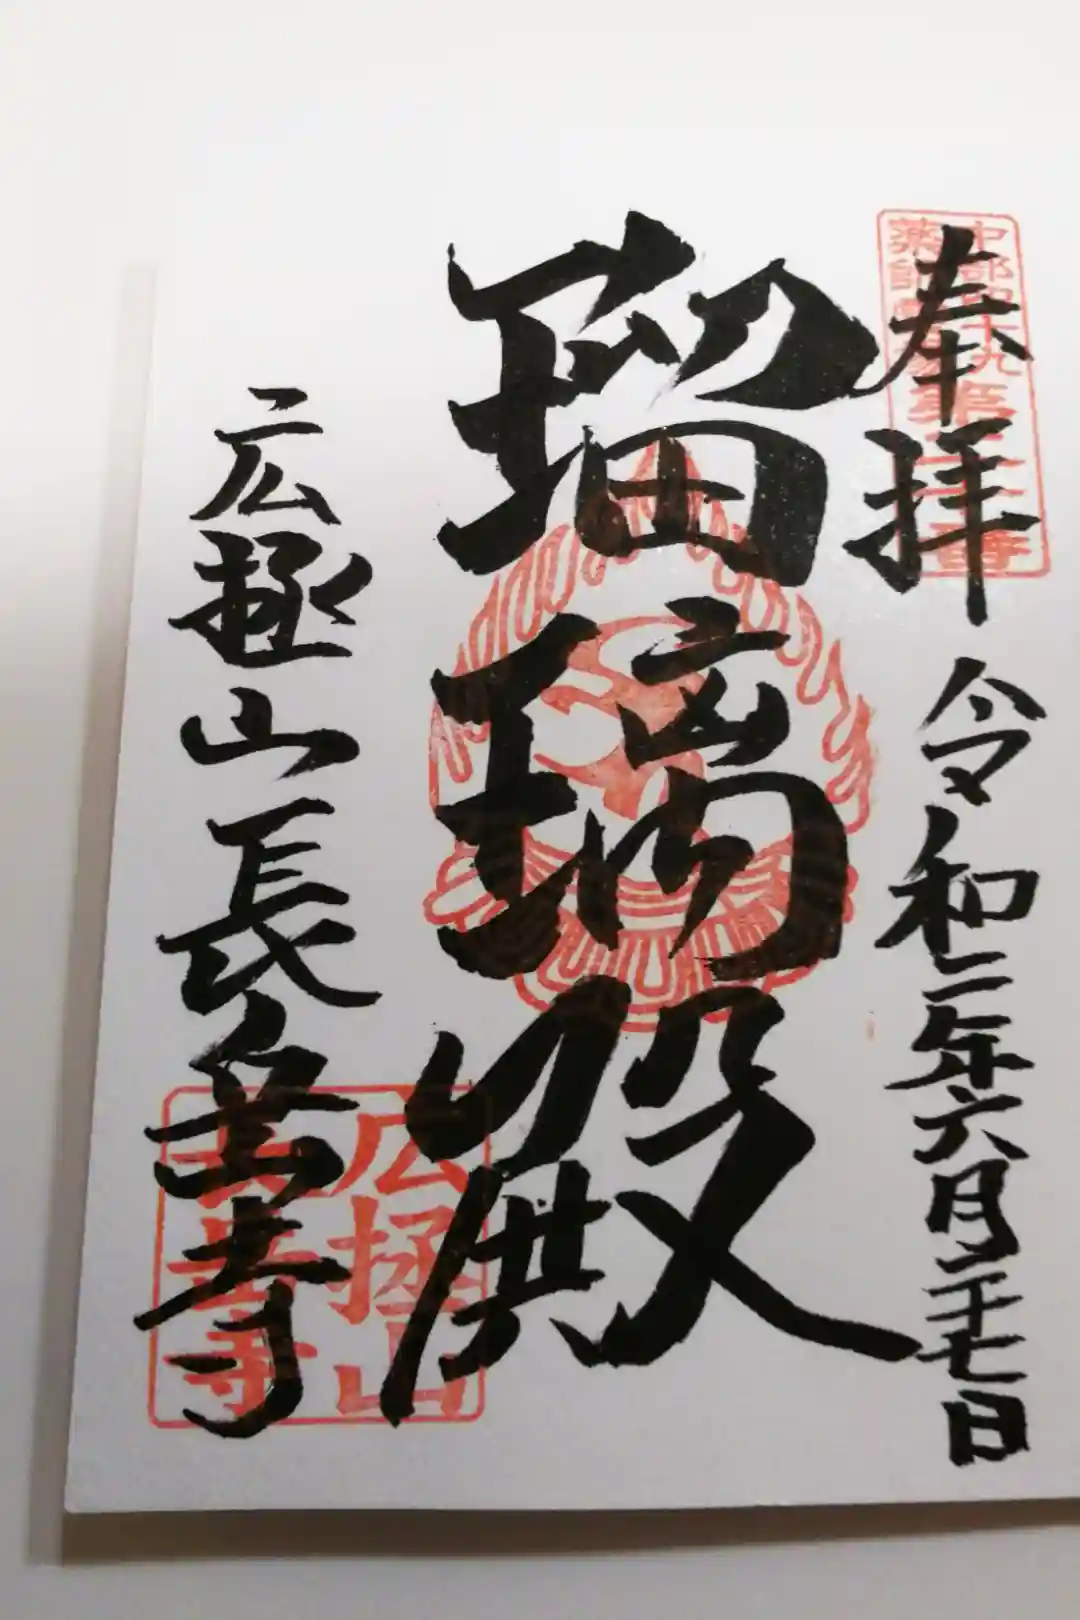 奉拝 令和二年六月二十七日
瑠璃殿
広拯山長岳寺
中部四十九
薬師霊場
広拯山
長岳寺